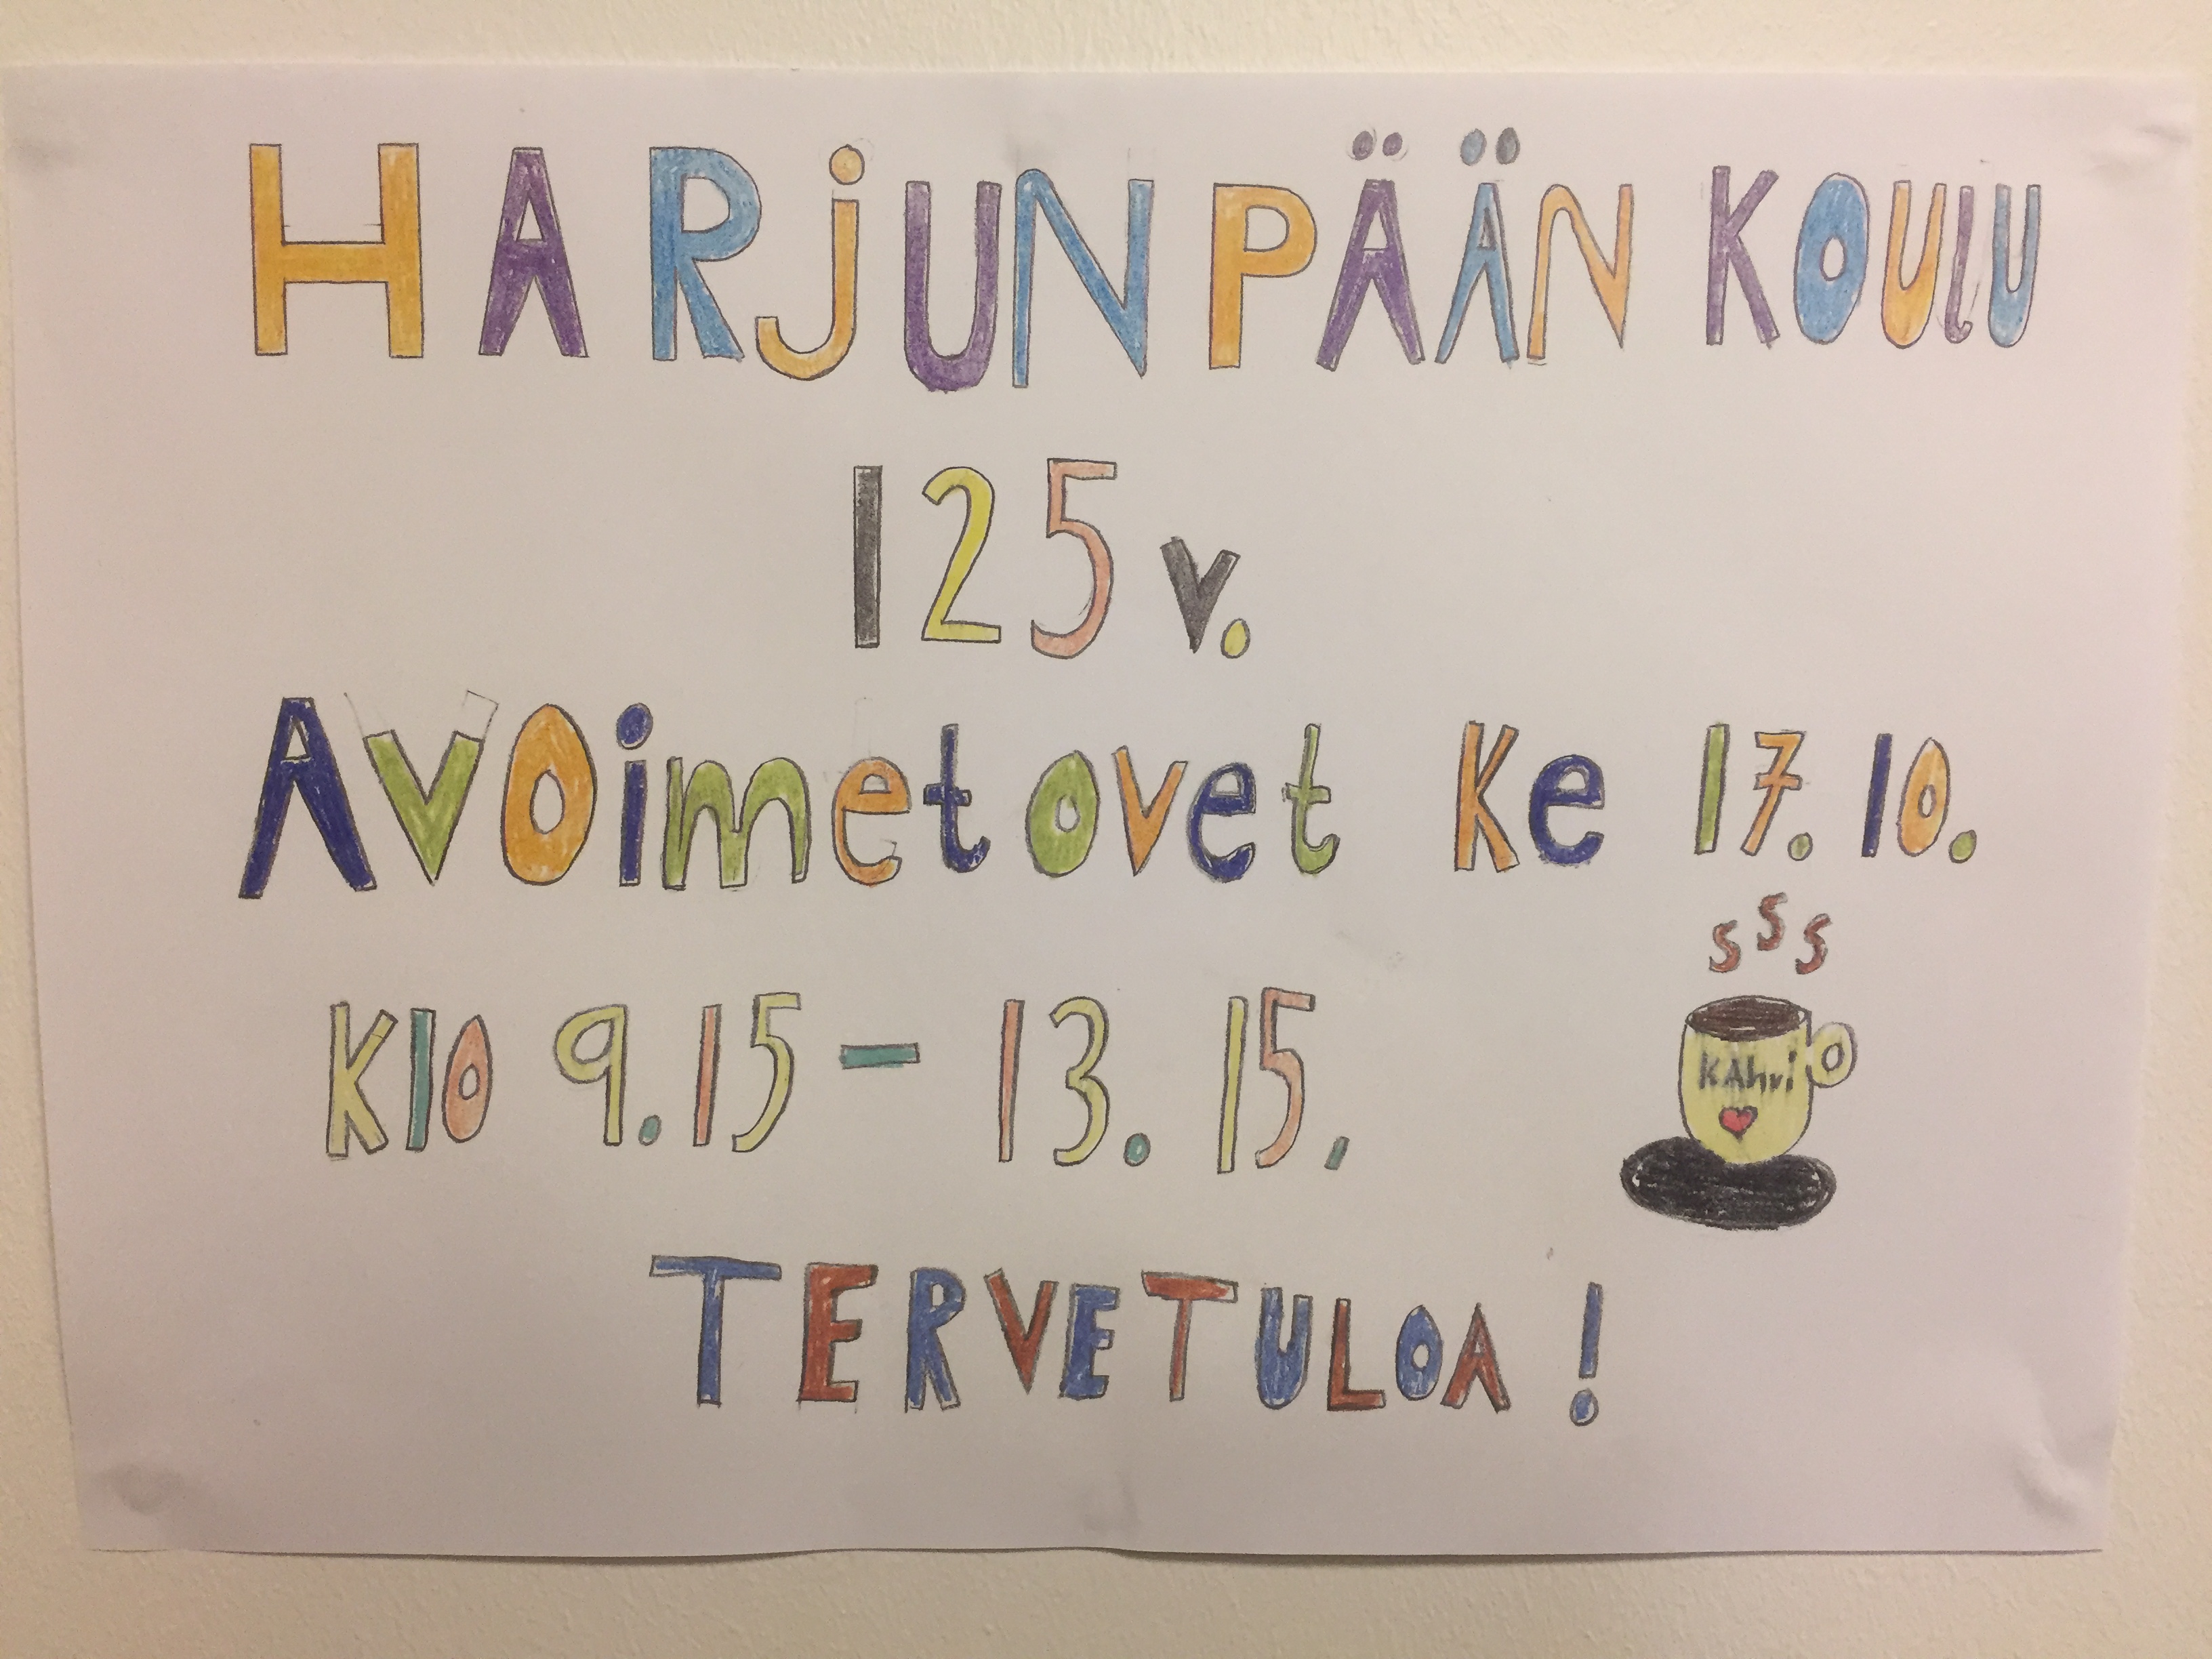 HARjUNPÄÄN KOUlU
125 v.
AVOimet ovet Ke 17.10.
Klo 9.15 – 13.15.
KAhvi
TERVETULOA!